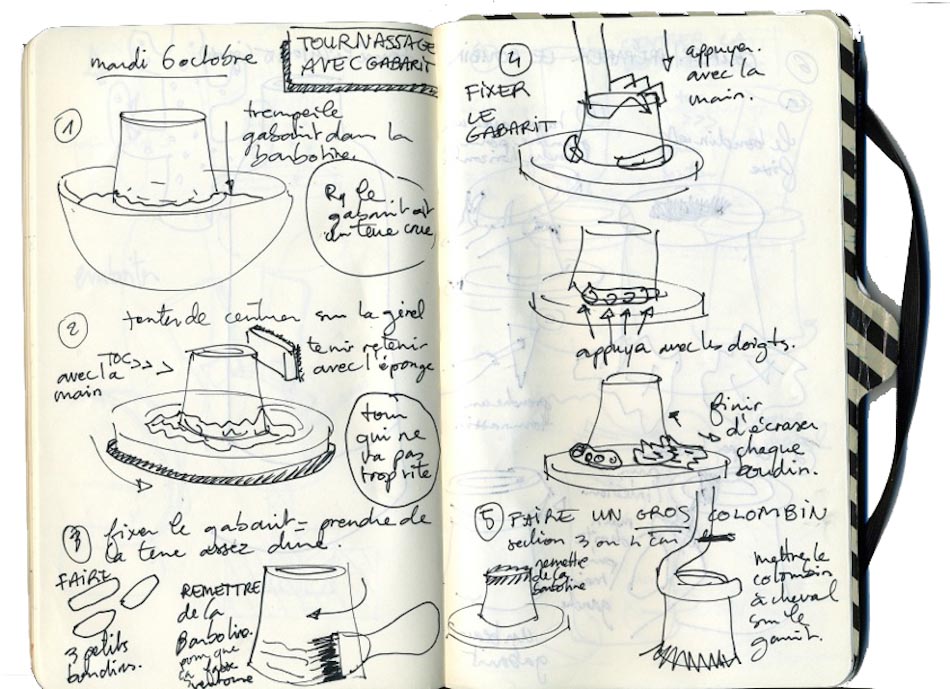 mardi 6 octobre
TOURNASSAGE
AVEC GABARIT
1
trempe le
gabarit dans la
barbotine.
Rq le
gabarit est
en terre crue
2
tenter de centrer sur la girel
avec la
main
TOC
tenir retenir
avec l'éponge
tour
qui ne
va pas
trop vite
3
fixer le gabarit = prendre de
la terre assez dure.
FAIRE
3 petits
boudins.
REMETTRE
de la
Barbotine.
pour que
ça fasse
4
FIXER
LE
GABARIT
appuyer.
avec la
main.
appuyer avec les doigts.
finir
d'écraser
chaque
boudin.
5
FAIRE UN GROS COLOMBIN
section 3 ou 4 cm
remettre
de la
barbotine
mettre le
colombin
à cheval
sur le